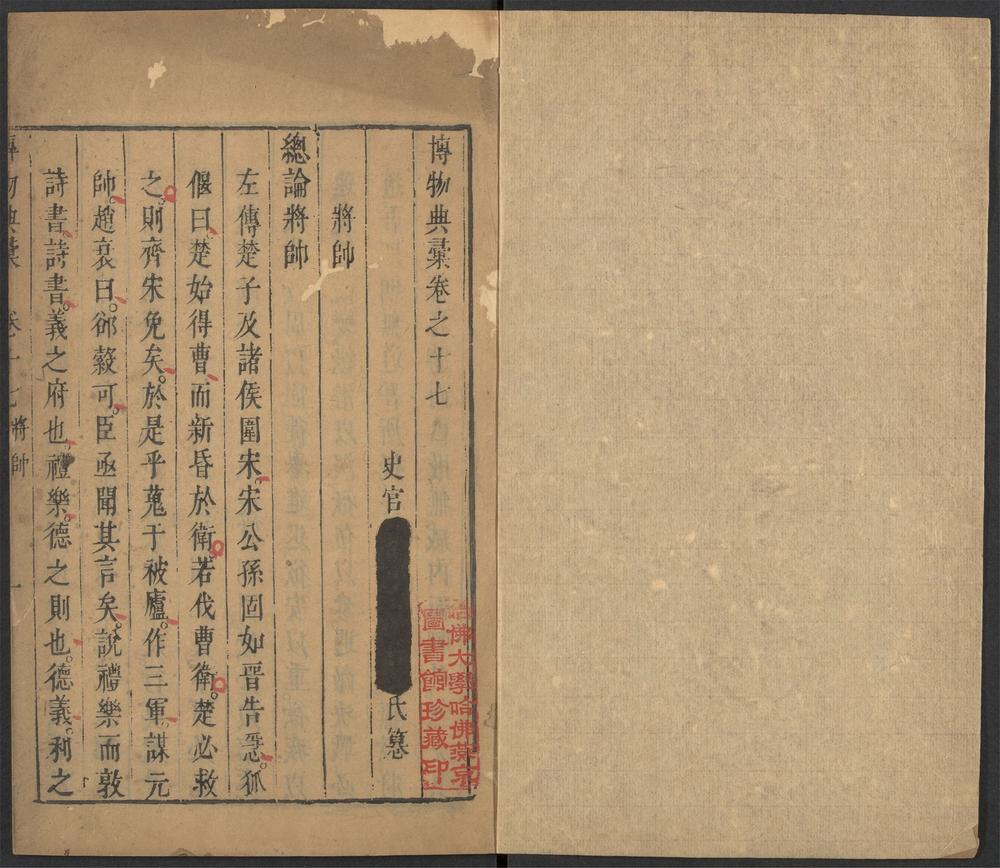 博物典彙卷之十七
史官
氏纂
將帥
總論將帥
左傳楚子及諸侯圍宋宋公孫固如晉告急狐
偃曰楚始得曹而新昏於衛若伐曹衛楚必救
之則齊宋免矣於是乎蒐于被廬作三軍謀元
帥趙衰曰郤縠可臣亟聞其言矣說禮樂而敦
詩書詩書義之府也禮樂德之則也德義利之
物典彙 卷十七 將帥 一
哈佛大學哈佛燕京
圖書館珍藏印